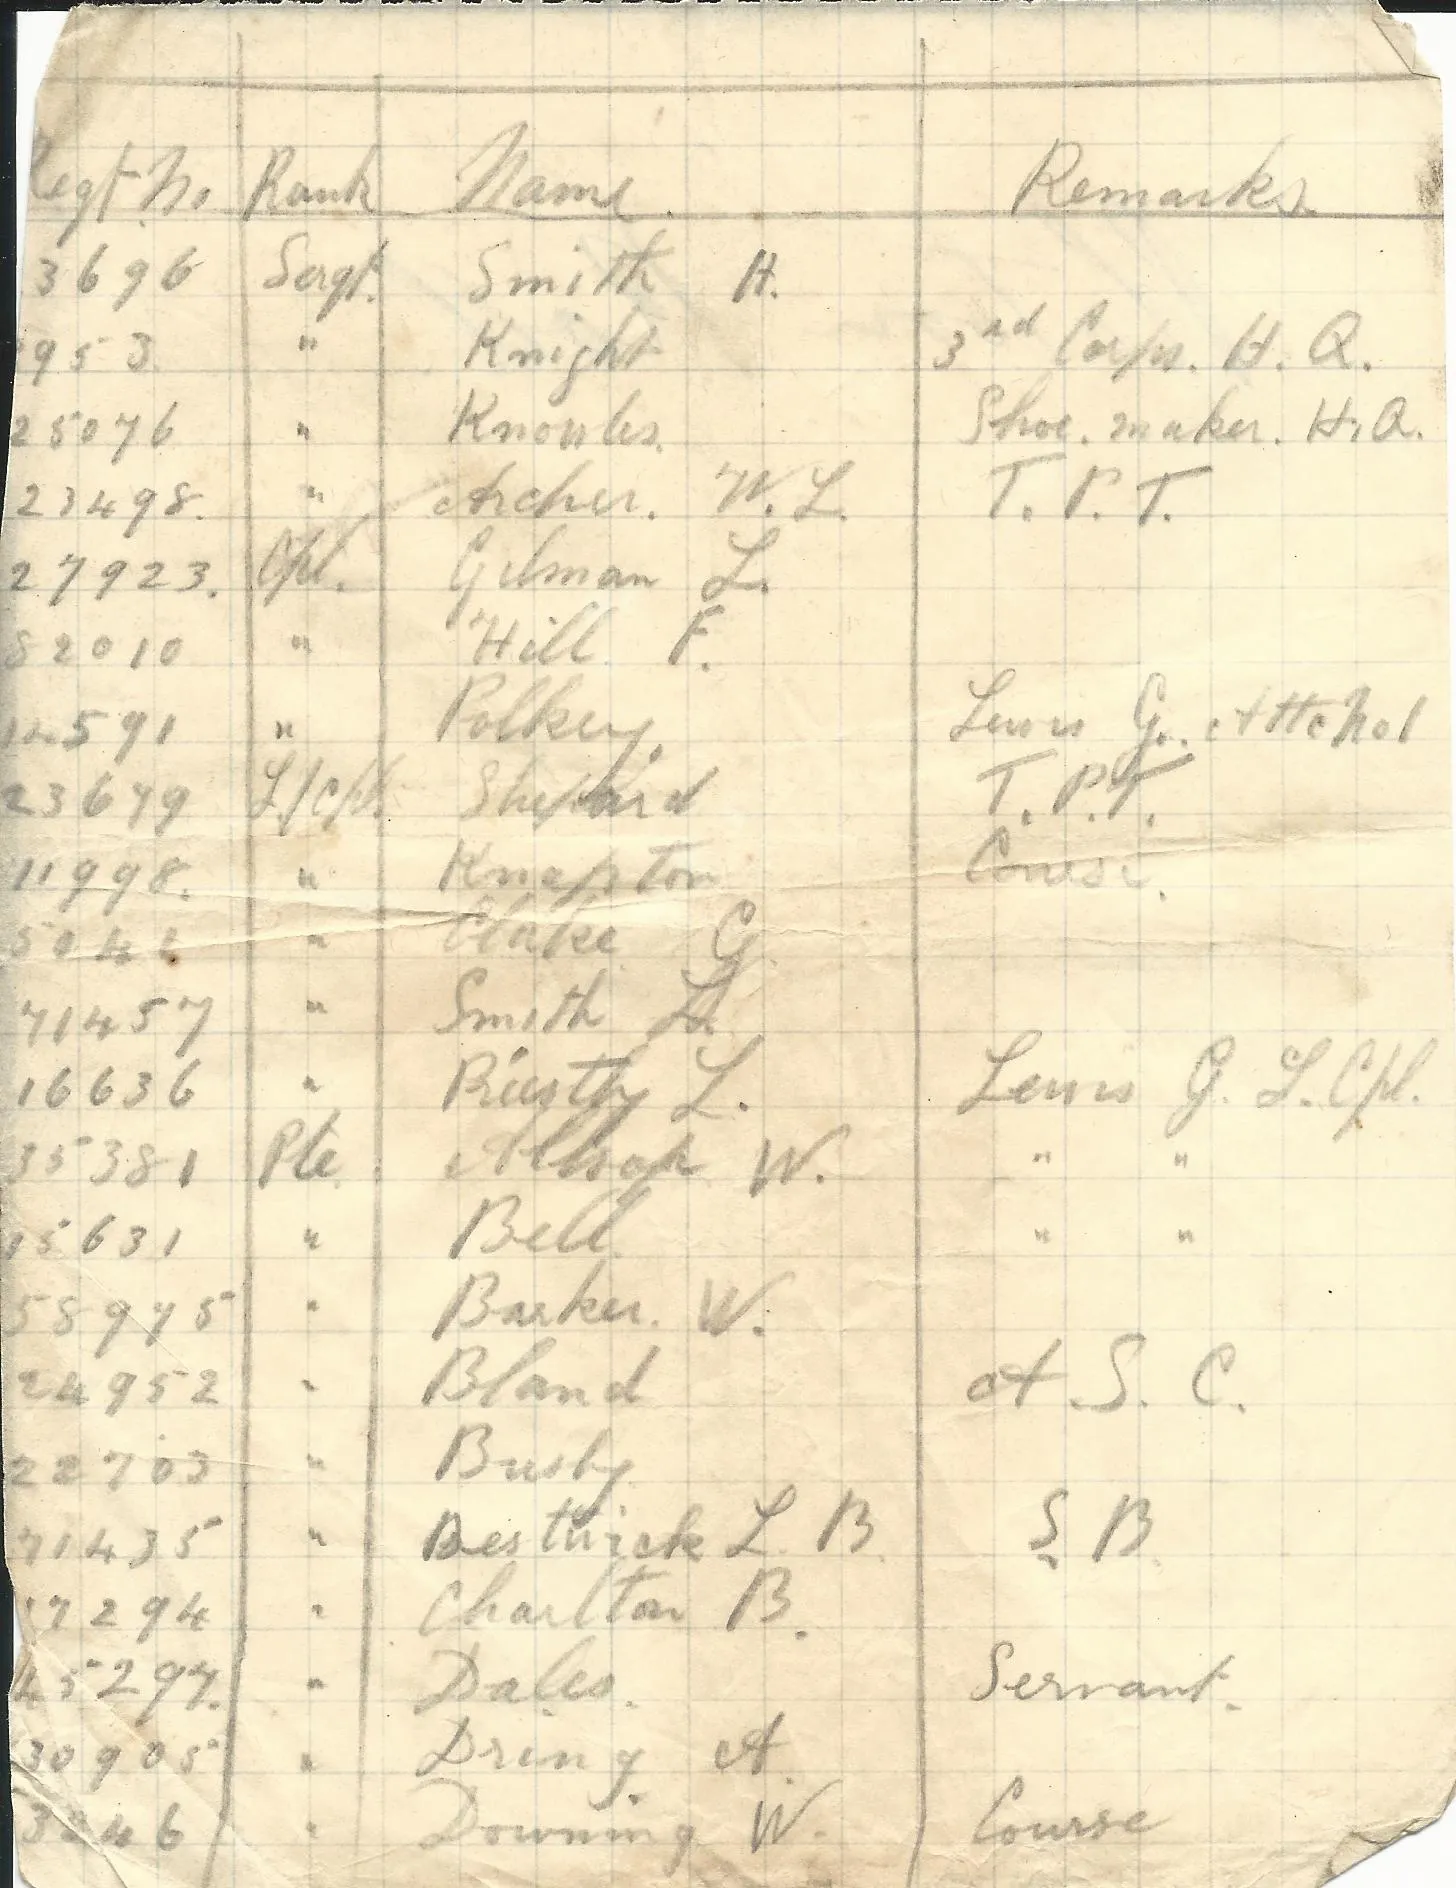 Regt No. Rank Name. Remarks.
3696 Sergt. Smith H.
953. " Knight 3rd Corps. H. Q.
25076 " Knowles. Shoe. maker. H. Q.
23498. " Archer. W. L. T. P. T.
27923. Cpl. Gilman L.
82010 " Hill F.
12591 " Polkey. Lewis G. Attchd
23679 L/cpl. Shepard T. P. T.
11998. " Knapton Course.
" Clarke G.
71457 " Smith
16636 " Priestly L. Lewis G. L. Cpl.
35381 Pte. Allsop W. " "
15631 " Bell. " "
58975 " Barker. W.
24952 " Bland A. S. C.
22703 " Busby
71435 " Bestwick L. B S. B.
17294 " Charlton B.
45297. " Dales. Servant.
30905 " Dring A.
" Downing W. Course